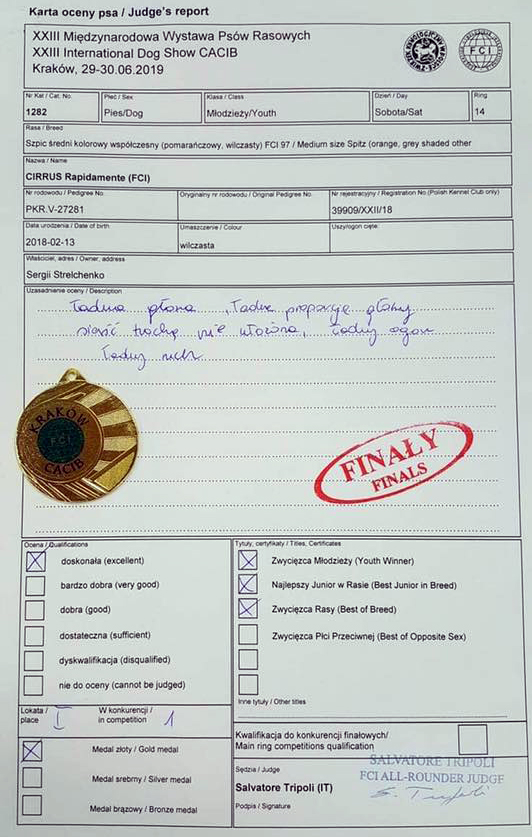 Karta oceny psa / Judge's report
XXIII Międzynarodowa Wystawa Psów Rasowych
XXIII International Dog Show CACIB
Kraków, 29-30.06.2019
FCI
Nr Kat / Cat. No.
Płeć / Sex
Klasa / Class
Dzień / Day
Ring
1282
Pies/Dog
Młodzieży/Youth
Sobota/Sat
14
Rasa / Breed
Szpic średni kolorowy współczesny (pomarańczowy, wilczasty) FCI 97 / Medium size Spitz (orange, grey shaded other
Nazwa / Name
CIRRUS Rapidamente (FCI)
Nr rodowodu / Pedigree No.
Oryginalny nr rodowodu / Original Pedigree No.
Nr rejestracyjny / Registration No.(Polish Kennel Club only)
PKR.V-27281
39909/XXII/18
Data urodzenia / Date of birth
Umaszczenie / Colour
Uszy/ogon cięte:
2018-02-13
wilczasta
Właściciel, adres / Owner, address
Sergii Strelchenko
Uzasadnienie oceny / Description
Ładna głowa, Ładne proporcje głowy
sierść trochę nie ułożona, ładny ogon
Ładny ruch
KRAKÓW
FCI
CACIB
FINAŁY
FINALS
Ocena / Qualifications
doskonała (excellent)
bardzo dobra (very good)
dobra (good)
dostateczna (sufficient)
dyskwalifikacja (disqualified)
nie do oceny (cannot be judged)
Tytuły, certyfikaty / Titles, Certificates
Zwycięzca Młodzieży (Youth Winner)
Najlepszy Junior w Rasie (Best Junior in Breed)
Zwycięzca Rasy (Best of Breed)
Zwycięzca Płci Przeciwnej (Best of Opposite Sex)
Inne tytuły / Other titles
Lokata / place
I
W konkurencji / in competition
1
Medal złoty / Gold medal
Medal srebrny / Silver medal
Medal brązowy / Bronze medal
Kwalifikacja do konkurencji finałowych/
Main ring competitions qualification
Sędzia / Judge
SALVATORE TRIPOLI
FCI ALL-ROUNDER JUDGE
Salvatore Tripoli (IT)
Podpis / Signature
S. Tripoli